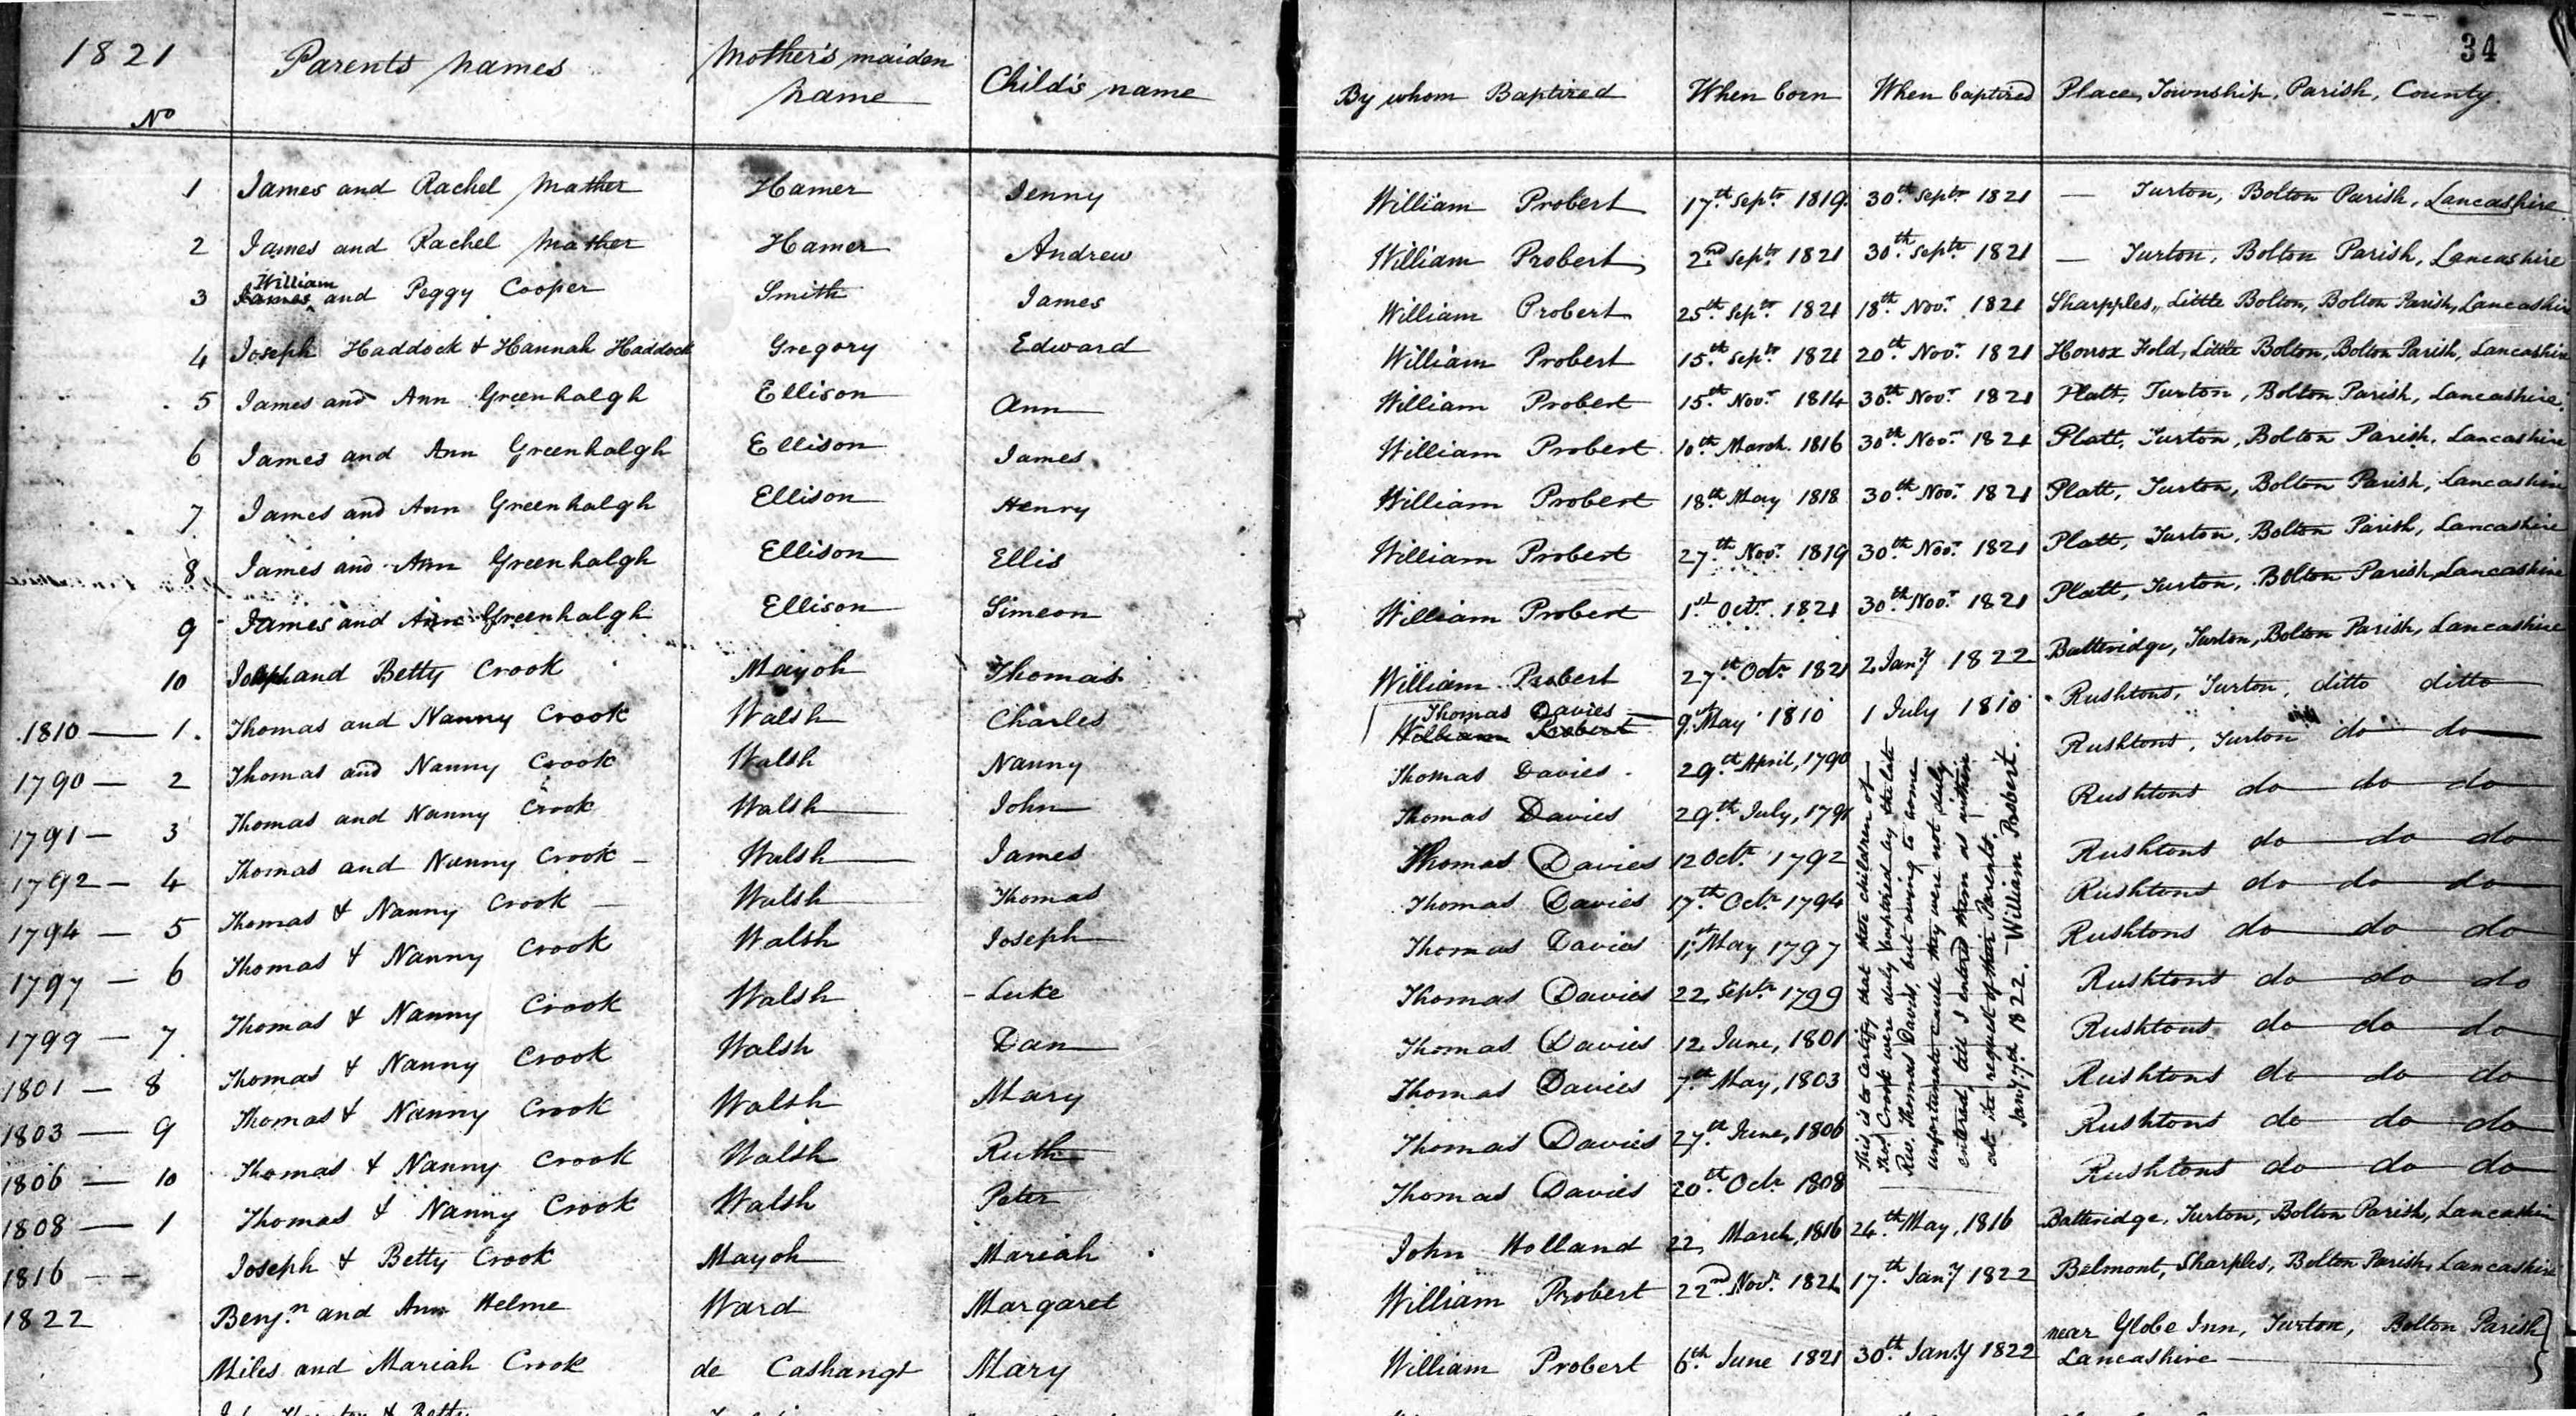 34
1821 Parents names Mother's maiden name Child's name By whom Baptized When born When baptized Place, Township, Parish, County.
No
1 James and Rachel Mather Hamer Jenny William Probert 17th Septr 1819 30th Septr 1821 — Turton, Bolton Parish, Lancashire
2 James and Rachel Mather Hamer Andrew William Probert 2nd Septr 1821 30th Septr 1821 — Turton, Bolton Parish, Lancashire
William
3 James and Peggy Cooper Smith James William Probert 25th Septr 1821 18th Novr 1821 Sharpples, Little Bolton, Bolton Parish, Lancashire
4 Joseph Haddock & Hannah Haddock Gregory Edward William Probert 15th Septr 1821 20th Novr 1821 Horrox Fold, Little Bolton, Bolton Parish, Lancashire
5 James and Ann Greenhalgh Ellison Ann William Probert 15th Novr 1814 30th Novr 1821 Platt, Turton, Bolton Parish, Lancashire
6 James and Ann Greenhalgh Ellison James William Probert 10th March 1816 30th Novr 1821 Platt, Turton, Bolton Parish, Lancashire
7 James and Ann Greenhalgh Ellison Henry William Probert 18th May 1818 30th Novr 1821 Platt, Turton, Bolton Parish, Lancashire
8 James and Ann Greenhalgh Ellison Ellis William Probert 27th Novr 1819 30th Novr 1821 Platt, Turton, Bolton Parish, Lancashire
9 James and Ann Greenhalgh Ellison Simeon William Probert 1st Octr 1821 30th Novr 1821 Platt, Turton, Bolton Parish, Lancashire
10 Joseph and Betty Crook Mayoh Thomas William Probert 27th Octr 1821 2 Jany 1822 Batteridge, Turton, Bolton Parish, Lancashire
Thomas Davies
1810 — 1. Thomas and Nanny Crook Walsh Charles William Probert 9th May 1810 1 July 1810 Rushtons, Turton, ditto ditto
1790 — 2 Thomas and Nanny Crook Walsh Nanny Thomas Davies 29th April, 1790 Rushtons, Turton do do
1791 — 3 Thomas and Nanny Crook Walsh John Thomas Davies 29th July, 1791 Rushtons do do do
1792 — 4 Thomas and Nanny Crook Walsh James Thomas Davies 12 Octr 1792 Rushtons do do do
1794 — 5 Thomas & Nanny Crook Walsh Thomas Thomas Davies 17th Octr 1794 Rushtons do do do
1797 — 6 Thomas & Nanny Crook Walsh Joseph Thomas Davies 1st May 1797 Rushtons do do do
1799 — 7 Thomas & Nanny Crook Walsh Luke Thomas Davies 22 Septr 1799 Rushtons do do do
1801 — 8 Thomas & Nanny Crook Walsh Dan Thomas Davies 12 June, 1801 Rushtons do do do
1803 — 9 Thomas & Nanny Crook Walsh Mary Thomas Davies 7th May, 1803 Rushtons do do do
1806 — 10 Thomas & Nanny Crook Walsh Ruth Thomas Davies 27th June, 1806 Rushtons do do do
1808 — 1 Thomas & Nanny Crook Walsh Peter Thomas Davies 20th Octr 1808 Rushtons do do do
This is to certify that these children of
Thos Crook were duly baptized by the late
Rev. Thomas Davies, but owing to some
unfortunate cause they were not duly
entered, till I entered them as within
at the request of their Parents.
Jany 7th 1822. William Probert.
1816 — Joseph & Betty Crook Mayoh Mariah John Holland 22, March, 1816 24th May, 1816 Batteridge, Turton, Bolton Parish, Lancashire
1822 Benjn and Ann Helme Ward Margaret William Probert 22nd Novr 1821 17th Jany 1822 Belmont, Sharples, Bolton Parish, Lancashire
Miles and Mariah Crook de Cashangt Mary William Probert 6th June 1821 30th Jany 1822 near Globe Inn, Turton, Bolton Parish
Lancashire